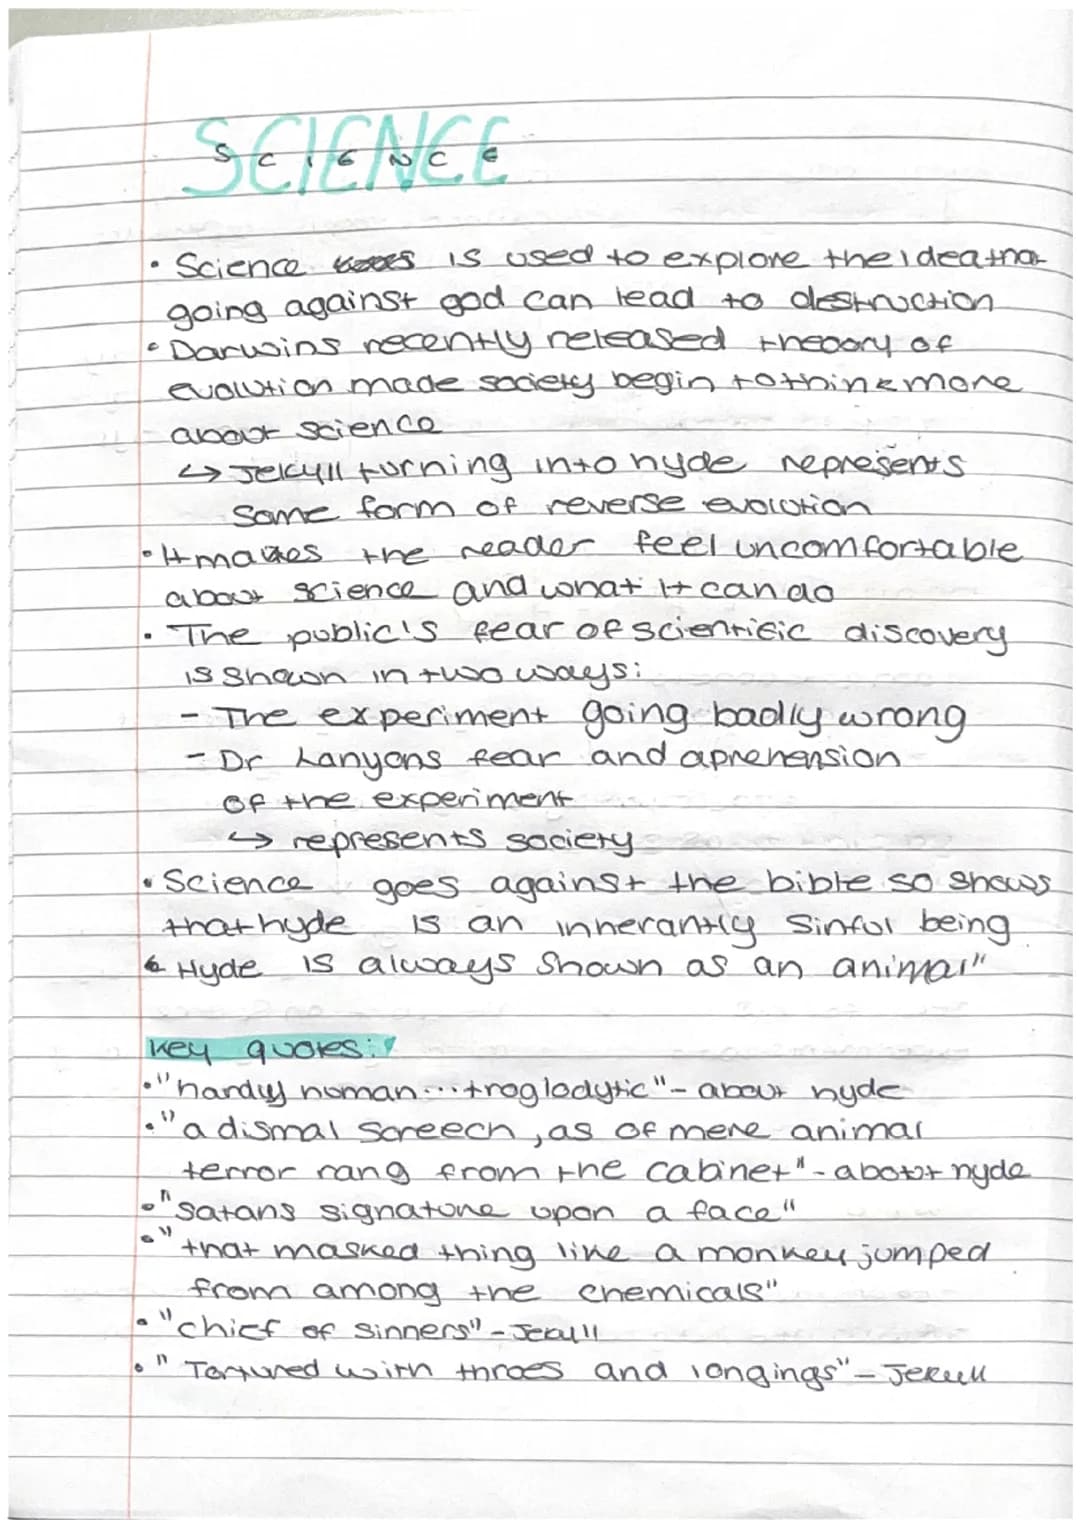 SCIENCE
• Science is used to explore the idea that
going against god can lead to destruction
• Darwins recently released theory of
evolution made society begin to think more
about science
↳ Jekyll turning into hyde represents
Some form of reverse evolution
• It makes the reader feel uncomfortable
about science and what it can do
• The public's fear of scientific discovery
is shown in two ways:
- The experiment going badly wrong
- Dr Lanyons fear and aprehension
of the experiment
↳ represents society
• Science goes against the bible so shows
that hyde is an inherantly sinful being
• Hyde is always shown as an animal"
Key quotes:
• "hardly human...troglodytic" - about hyde
• "a dismal screech, as of mere animal
terror rang from the cabinet" - about hyde
• "Satans signature upon a face"
• "that masked thing like a monkey jumped
from among the chemicals"
• "chief of sinners" - Jekyll
• "Tortured with throes and longings" - Jekyll